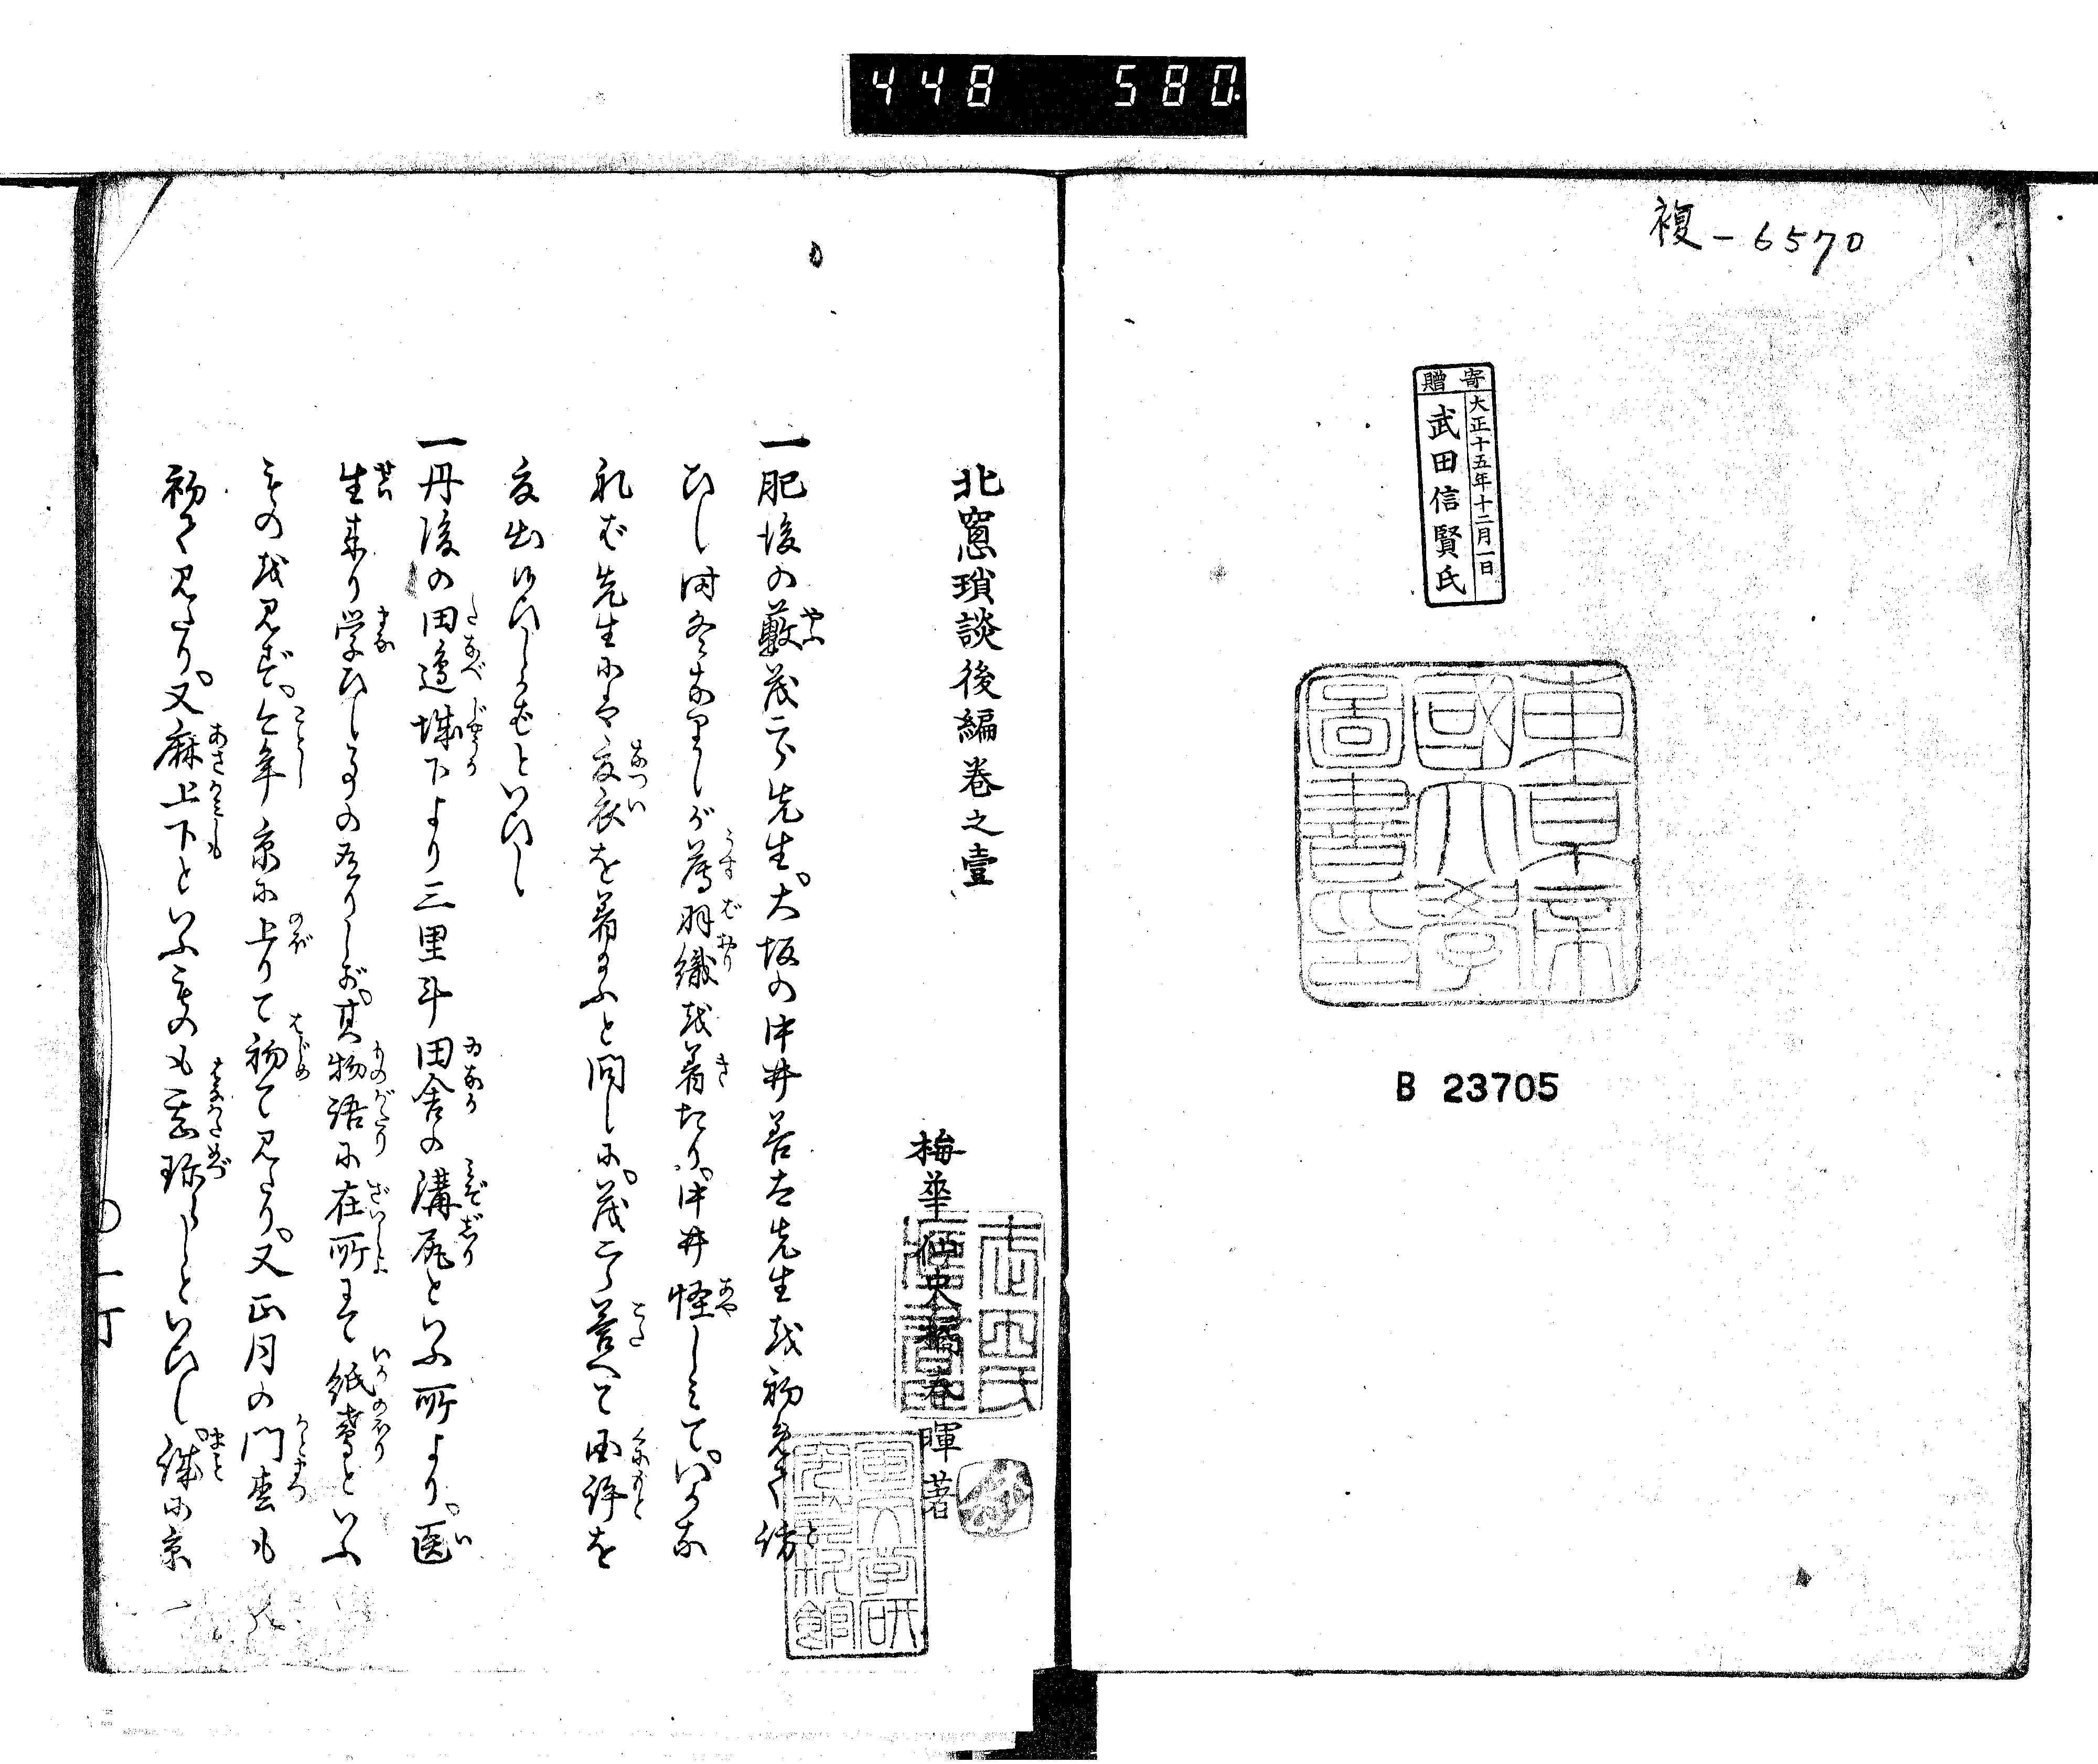 448 580.
複-6570
寄贈
大正十五年十二月一日
武田信賢氏
東京帝
國大學
圖書印
B 23705
北窓瑣談後編卷之壹
梅華仙史橘春暉著
一肥後の藪茂二郎先生。大坂の中井善太先生を初めて訪
ひし時冬なりしが薄羽織を着たり。中井怪しみて。いかな
れば先生には夏衣を着給ふと問しに。茂二郎答へて国許を
夏出候ひしかばといひし
一丹後の田邊城下より三里斗田舎の溝尻といふ所より。医
生来り学ひしもの有りしが。其物語に在所にて紙鳶といふ
ものを見ず。今年京に上りて初て見たり。又正月の門松も
初て見たり。又麻上下といふものも甚珍らしといひし。誠に京
一